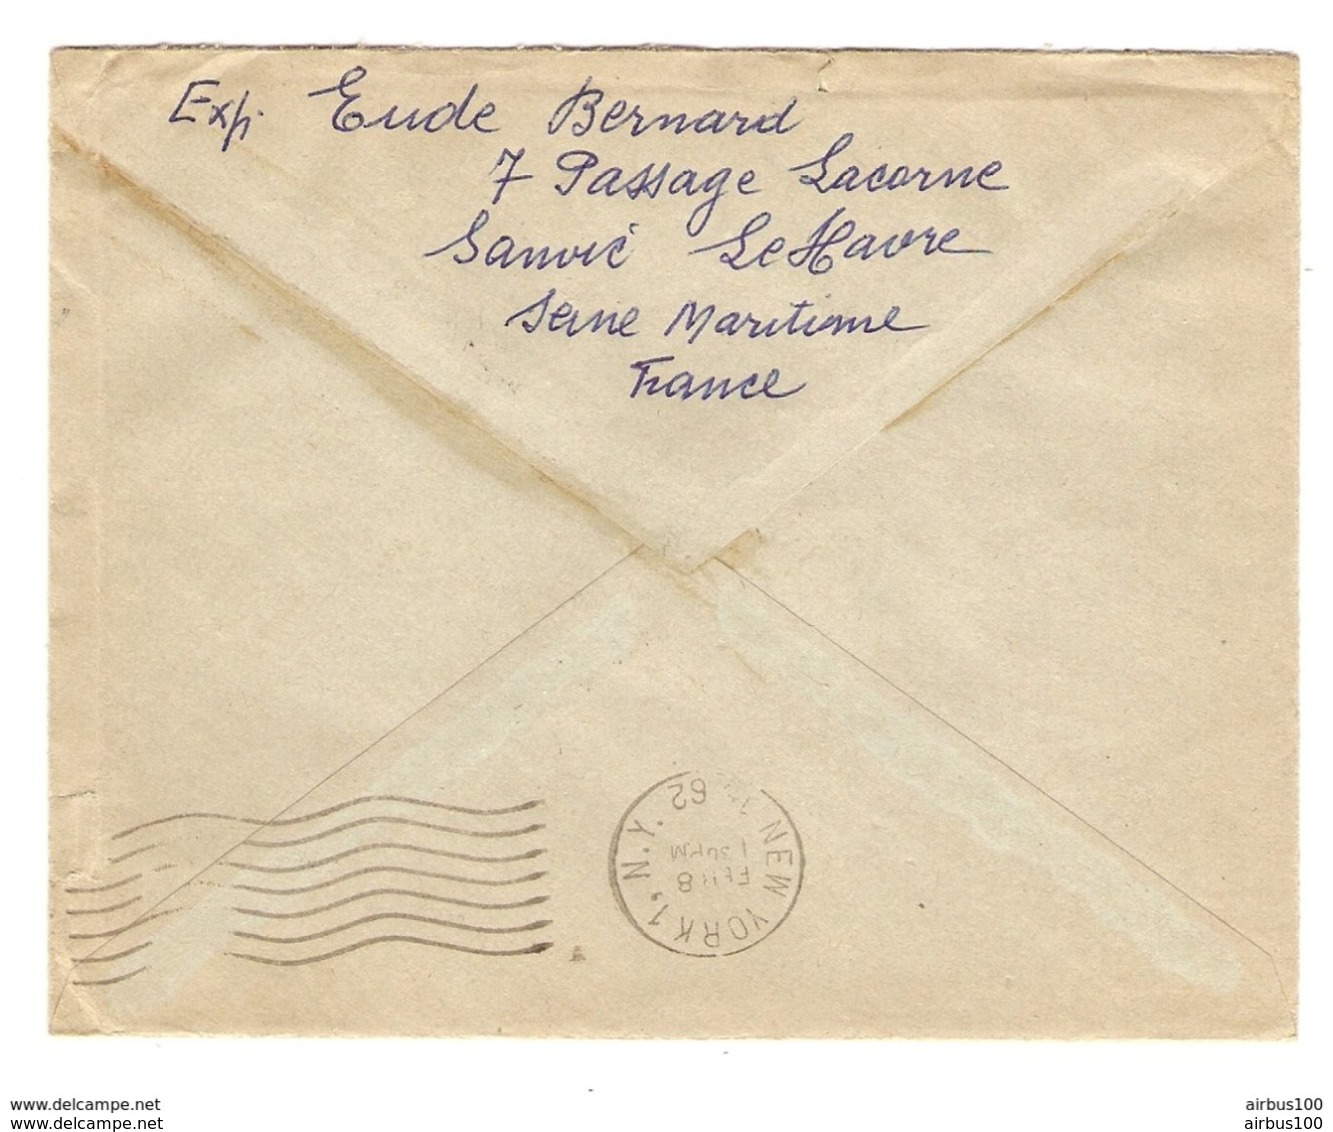 Exp. Eude Bernard
7 Passage Lacorne
Sanvic Le Havre
Seine Maritime
France
NEW YORK 1, N.Y.
FEB 8
1 30 PM
62
www.delcampe.net
airbus100
www.delcampe.net
airbus100